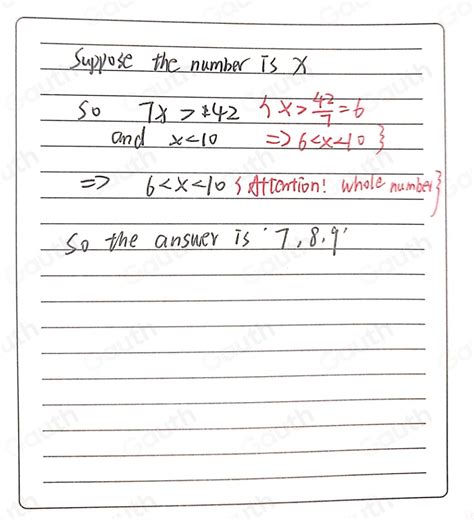 Suppose the number is x
So 7x > 42 { x > 42/7 = 6
and x < 10 => 6 < x < 10 }
=> 6 < x < 10 { Attention! whole number }
So the answer is '7, 8, 9'